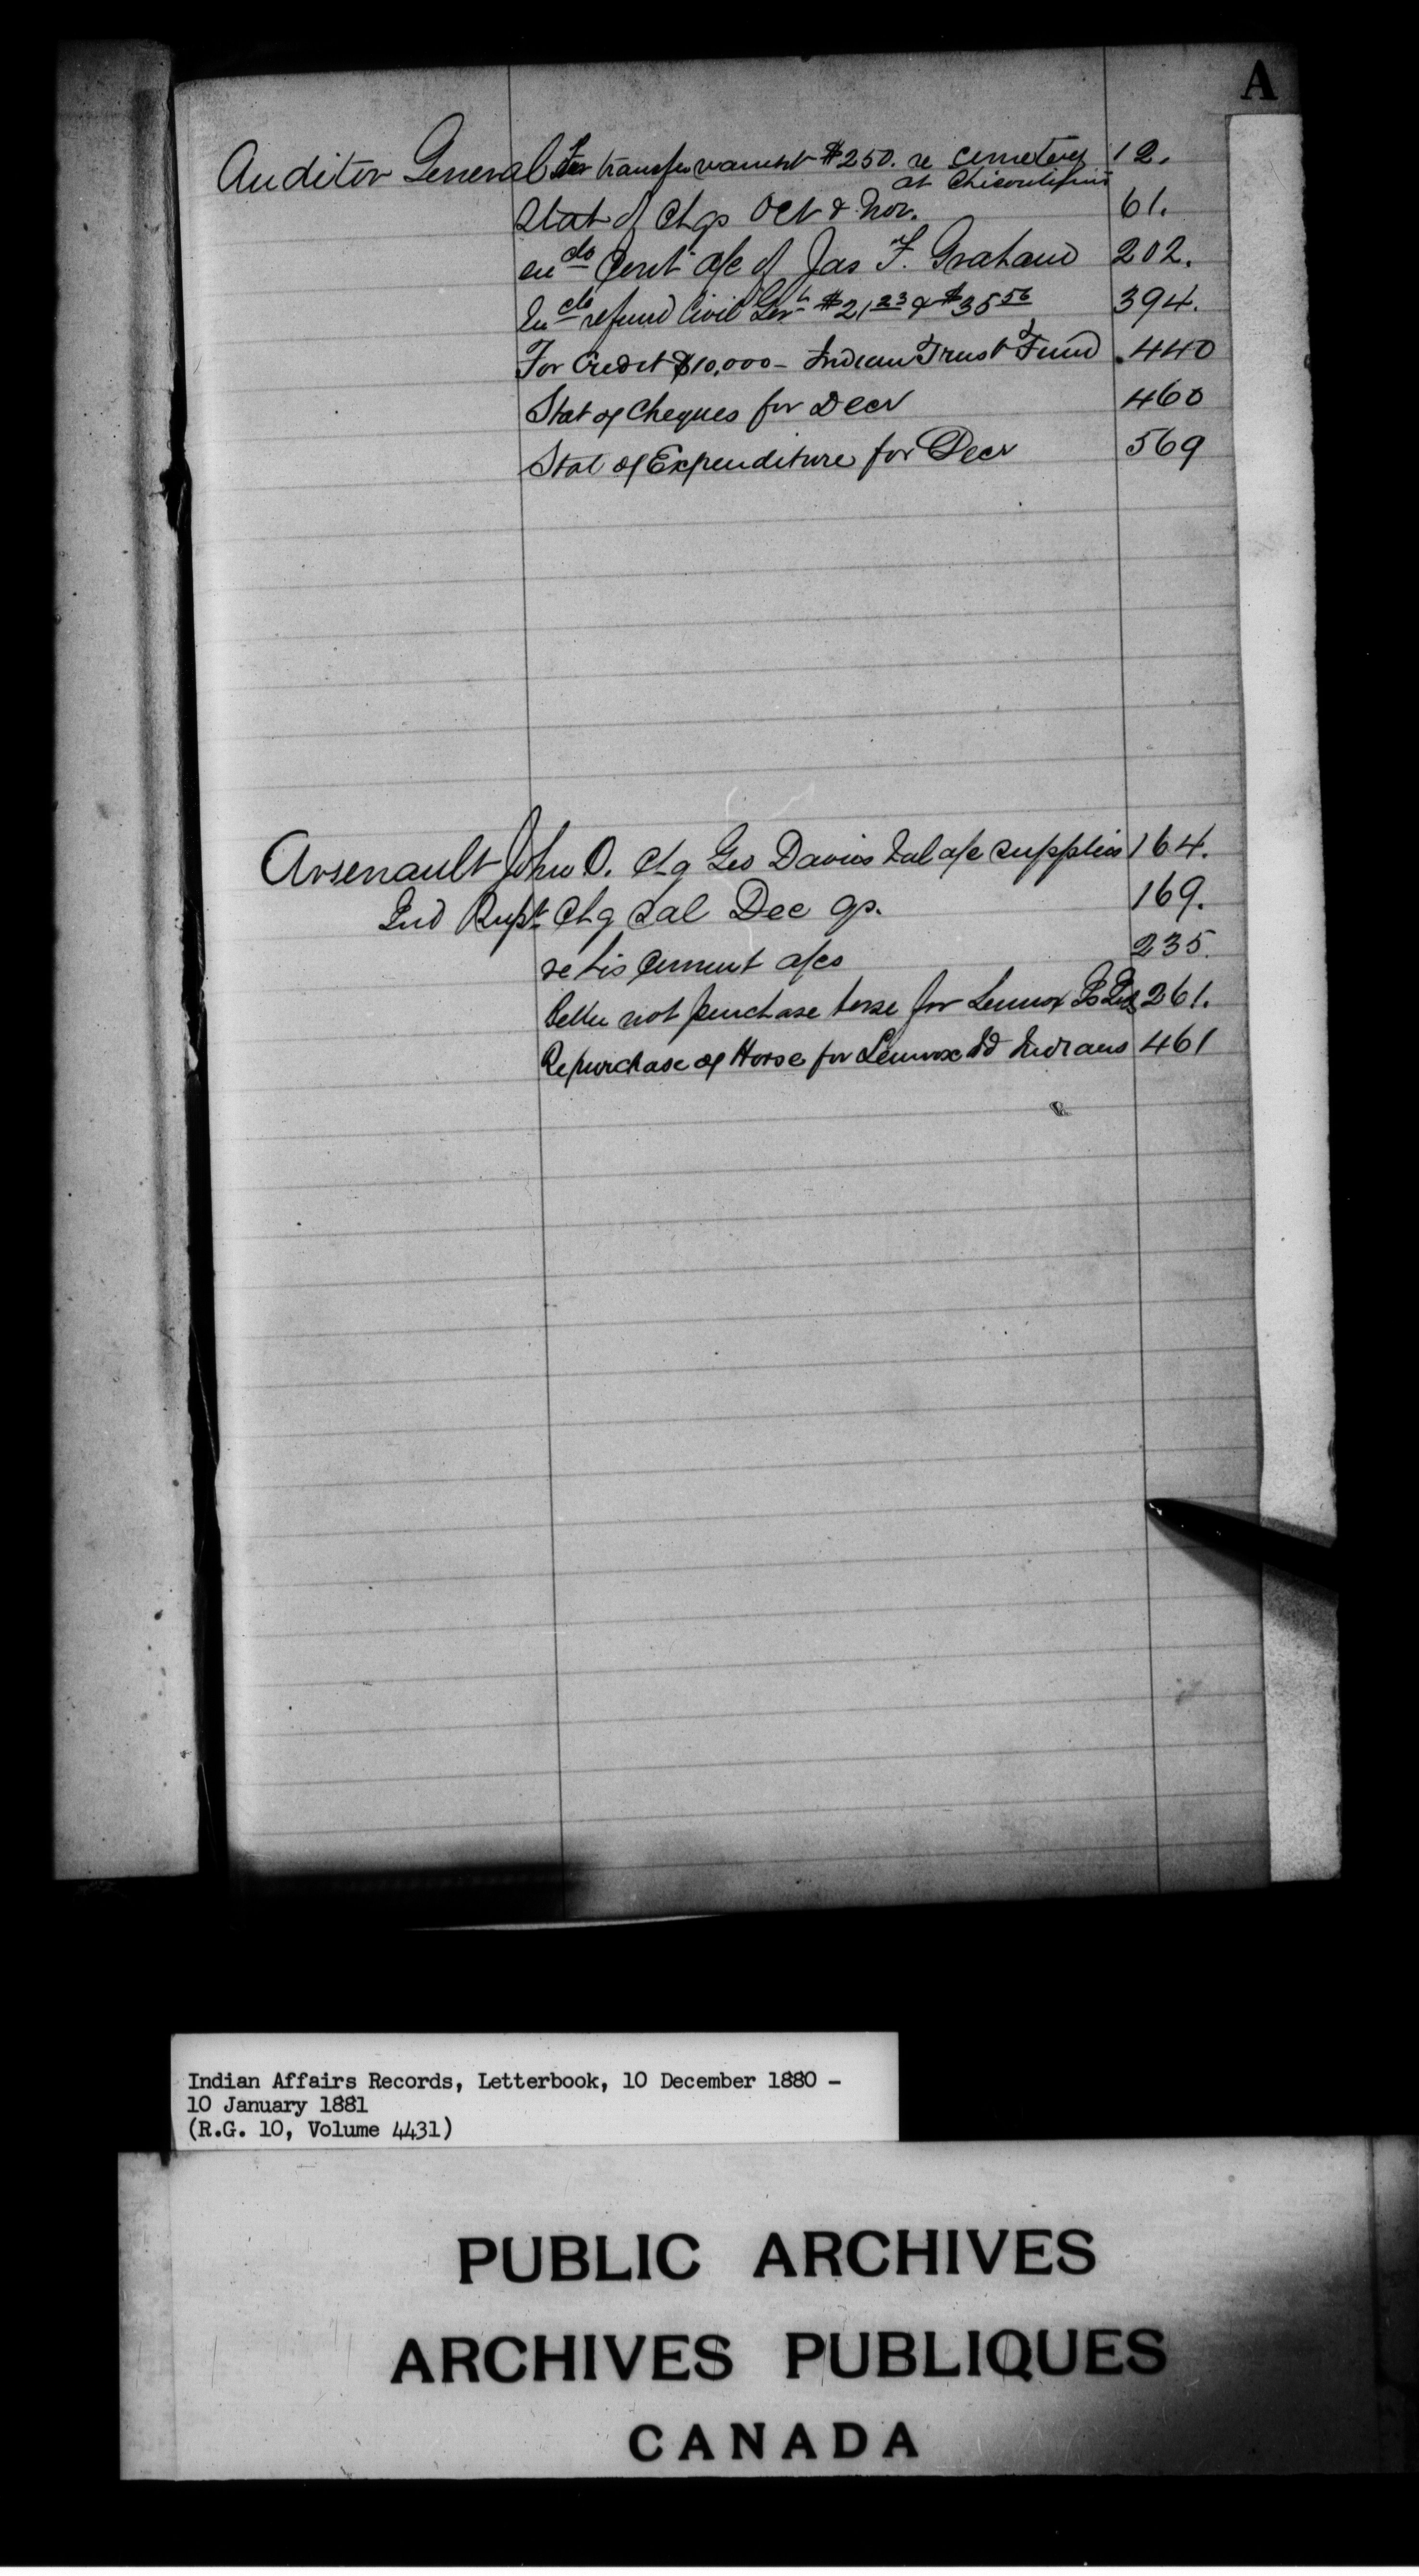 A
Auditor General For transfer warrant $250. re Cemetery 12.
at Chicoutimi
Stat of Chqs Oct & Nov. 61.
en clo Cert a/c of Jas F. Graham 202.
In clo refund Civil $21 23 & $35 56 394.
For Credit $10,000 - Indian Trust Fund 440
Stat of Cheques for Decr 460
Stat of Expenditure for Decr 569
Arsenault John O. Chq Geo Davies bal a/c supplies 164.
Ind Supt Chq Sal Dec qr. 169.
re his current a/cs 235.
Better not purchase horse for Lennox Id 261.
Re purchase of Horse for Lennox Id Indians 461
Indian Affairs Records, Letterbook, 10 December 1880 -
10 January 1881
(R.G. 10, Volume 4431)
PUBLIC ARCHIVES
ARCHIVES PUBLIQUES
CANADA